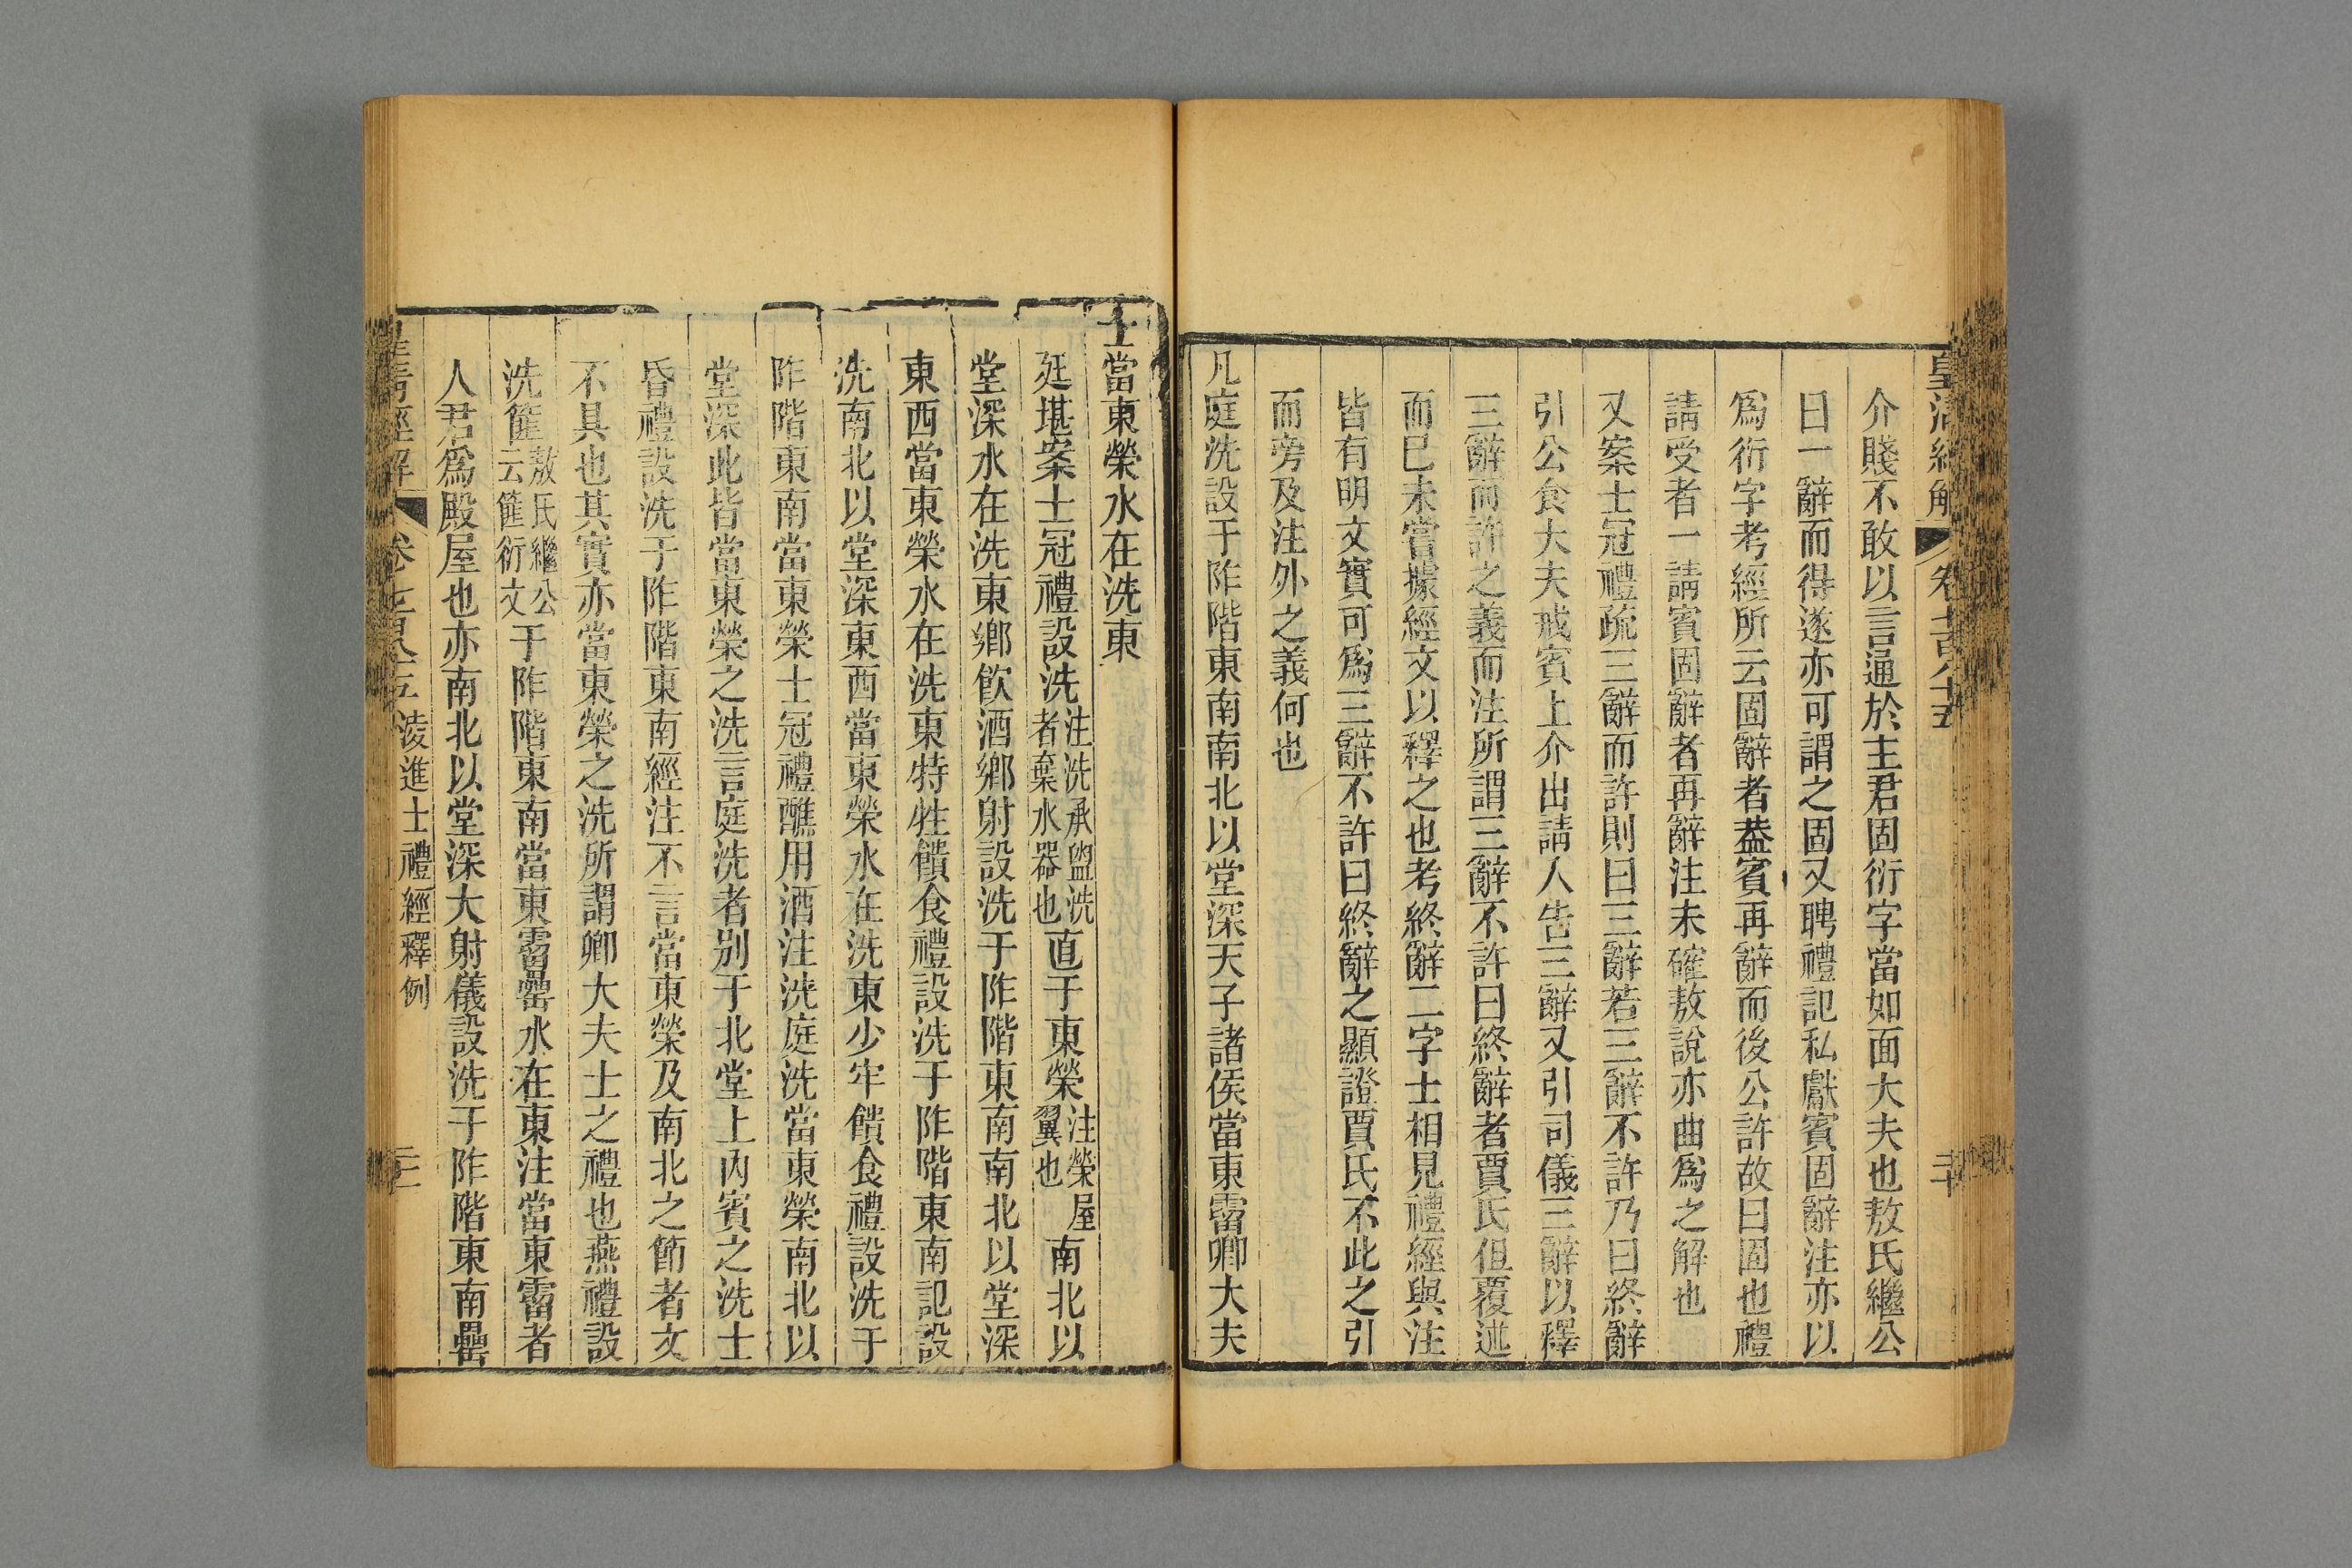 皇清經解 卷七百八十五 二十
介賤不敢以言通於主君固衍字當如面大夫也敖氏繼公
曰一辭而得遂亦可謂之固又聘禮記私獻賓固辭注亦以
爲衍字考經所云固辭者葢賓再辭而後公許故曰固也禮
請受者一請賓固辭者再辭注未確敖說亦曲爲之解也
又案士冠禮疏三辭而許則曰三辭若三辭不許乃曰終辭
引公食大夫戒賓上介出請入告三辭又引司儀三辭以釋
三辭而許之義而注所謂三辭不許曰終辭者賈氏但覆述
而已未嘗據經文以釋之也考終辭二字士相見禮經與注
皆有明文實可爲三辭不許曰終辭之顯證賈氏不此之引
而旁及注外之義何也
凡庭洗設于阼階東南南北以堂深天子諸侯當東霤卿大夫
士當東榮水在洗東
廷堪案士冠禮設洗注洗承盥洗者棄水器也直于東榮注榮屋翼也南北以
堂深水在洗東鄉飲酒鄉射設洗于阼階東南南北以堂深
東西當東榮水在洗東特牲饋食禮設洗于阼階東南記設
洗南北以堂深東西當東榮水在洗東少牢饋食禮設洗于
阼階東南當東榮士冠禮醮用酒注洗庭洗當東榮南北以
堂深此皆當東榮之洗言庭洗者别于北堂上內賓之洗士
昏禮設洗于阼階東南經注不言當東榮及南北之節者文
不具也其實亦當東榮之洗所謂卿大夫士之禮也燕禮設
洗篚敖氏繼公云篚衍文于阼階東南當東霤罍水在東注當東霤者
人君爲殿屋也亦南北以堂深大射儀設洗于阼階東南罍
皇清經解 卷七百八十五 淩進士禮經釋例 二十一